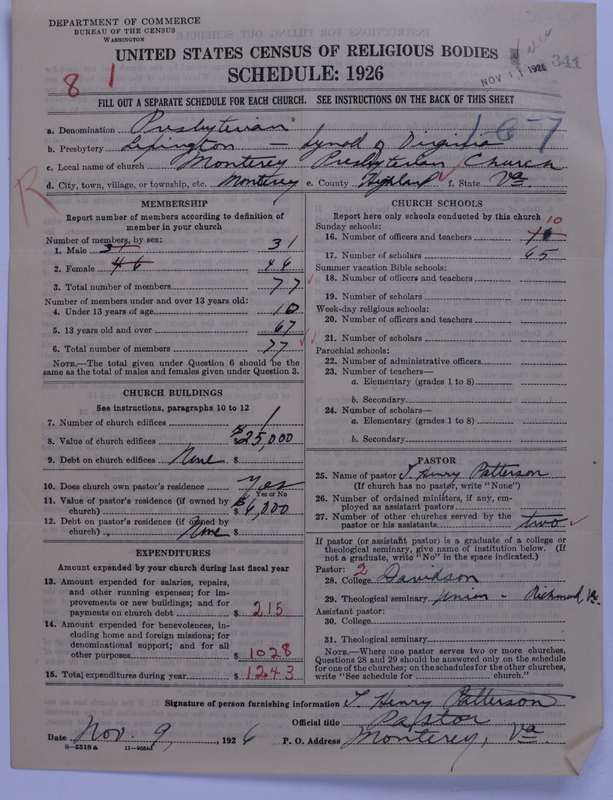 DEPARTMENT OF COMMERCE
BUREAU OF THE CENSUS
WASHINGTON
UNITED STATES CENSUS OF RELIGIOUS BODIES
SCHEDULE: 1926
8 1
NOV 11 1926
341
FILL OUT A SEPARATE SCHEDULE FOR EACH CHURCH. SEE INSTRUCTIONS ON THE BACK OF THIS SHEET
167
a. Denomination Presbyterian
b. Presbytery Lexington - Synod of Virginia
c. Local name of church Monterey Presbyterian Church
d. City, town, village, or township, etc. Monterey e. County Highland f. State Va
R
MEMBERSHIP
Report number of members according to definition of member in your church
Number of members, by sex:
1. Male 31 31
2. Female 46 46
3. Total number of members 77
Number of members under and over 13 years old:
4. Under 13 years of age 10
5. 13 years old and over 67
6. Total number of members 77
NOTE.—The total given under Question 6 should be the same as the total of males and females given under Question 3.
CHURCH BUILDINGS
See instructions, paragraphs 10 to 12
7. Number of church edifices 1
8. Value of church edifices $25,000
9. Debt on church edifices None $
10. Does church own pastor's residence Yes
Yes or No
11. Value of pastor's residence (if owned by church) $6,000
12. Debt on pastor's residence (if owned by church) None $
EXPENDITURES
Amount expended by your church during last fiscal year
13. Amount expended for salaries, repairs, and other running expenses; for improvements on new buildings; and for payments on church debt $ 215
14. Amount expended for benevolences, including home and foreign missions; for denominational support; and for all other purposes $ 1028
15. Total expenditures during year $ 1243
CHURCH SCHOOLS
Report here only schools conducted by this church
Sunday schools:
16. Number of officers and teachers 10
17. Number of scholars 65
Summer vacation Bible schools:
18. Number of officers and teachers
19. Number of scholars
Week-day religious schools:
20. Number of officers and teachers
21. Number of scholars
Parochial schools:
22. Number of administrative officers
23. Number of teachers—
a. Elementary (grades 1 to 8)
b. Secondary
24. Number of scholars—
a. Elementary (grades 1 to 8)
b. Secondary
PASTOR
25. Name of pastor T. Henry Patterson
(If church has no pastor, write "None")
26. Number of ordained ministers, if any, employed as assistant pastors
27. Number of other churches served by the pastor or his assistants two
If pastor (or assistant pastor) is a graduate of a college or theological seminary, give name of institution below. (If not a graduate, write "No" in the space indicated.)
Pastor: 2
28. College Davidson
29. Theological seminary Union - Richmond, Va.
Assistant pastor:
30. College
31. Theological seminary
NOTE.—Where one pastor serves two or more churches, Questions 28 and 29 should be answered only on the schedule for one of the churches; on the schedules for the other churches, write "See schedule for church."
Signature of person furnishing information T. Henry Patterson
Official title Pastor
Date Nov. 9, 1926 P. O. Address Monterey, Va.
8-5518a